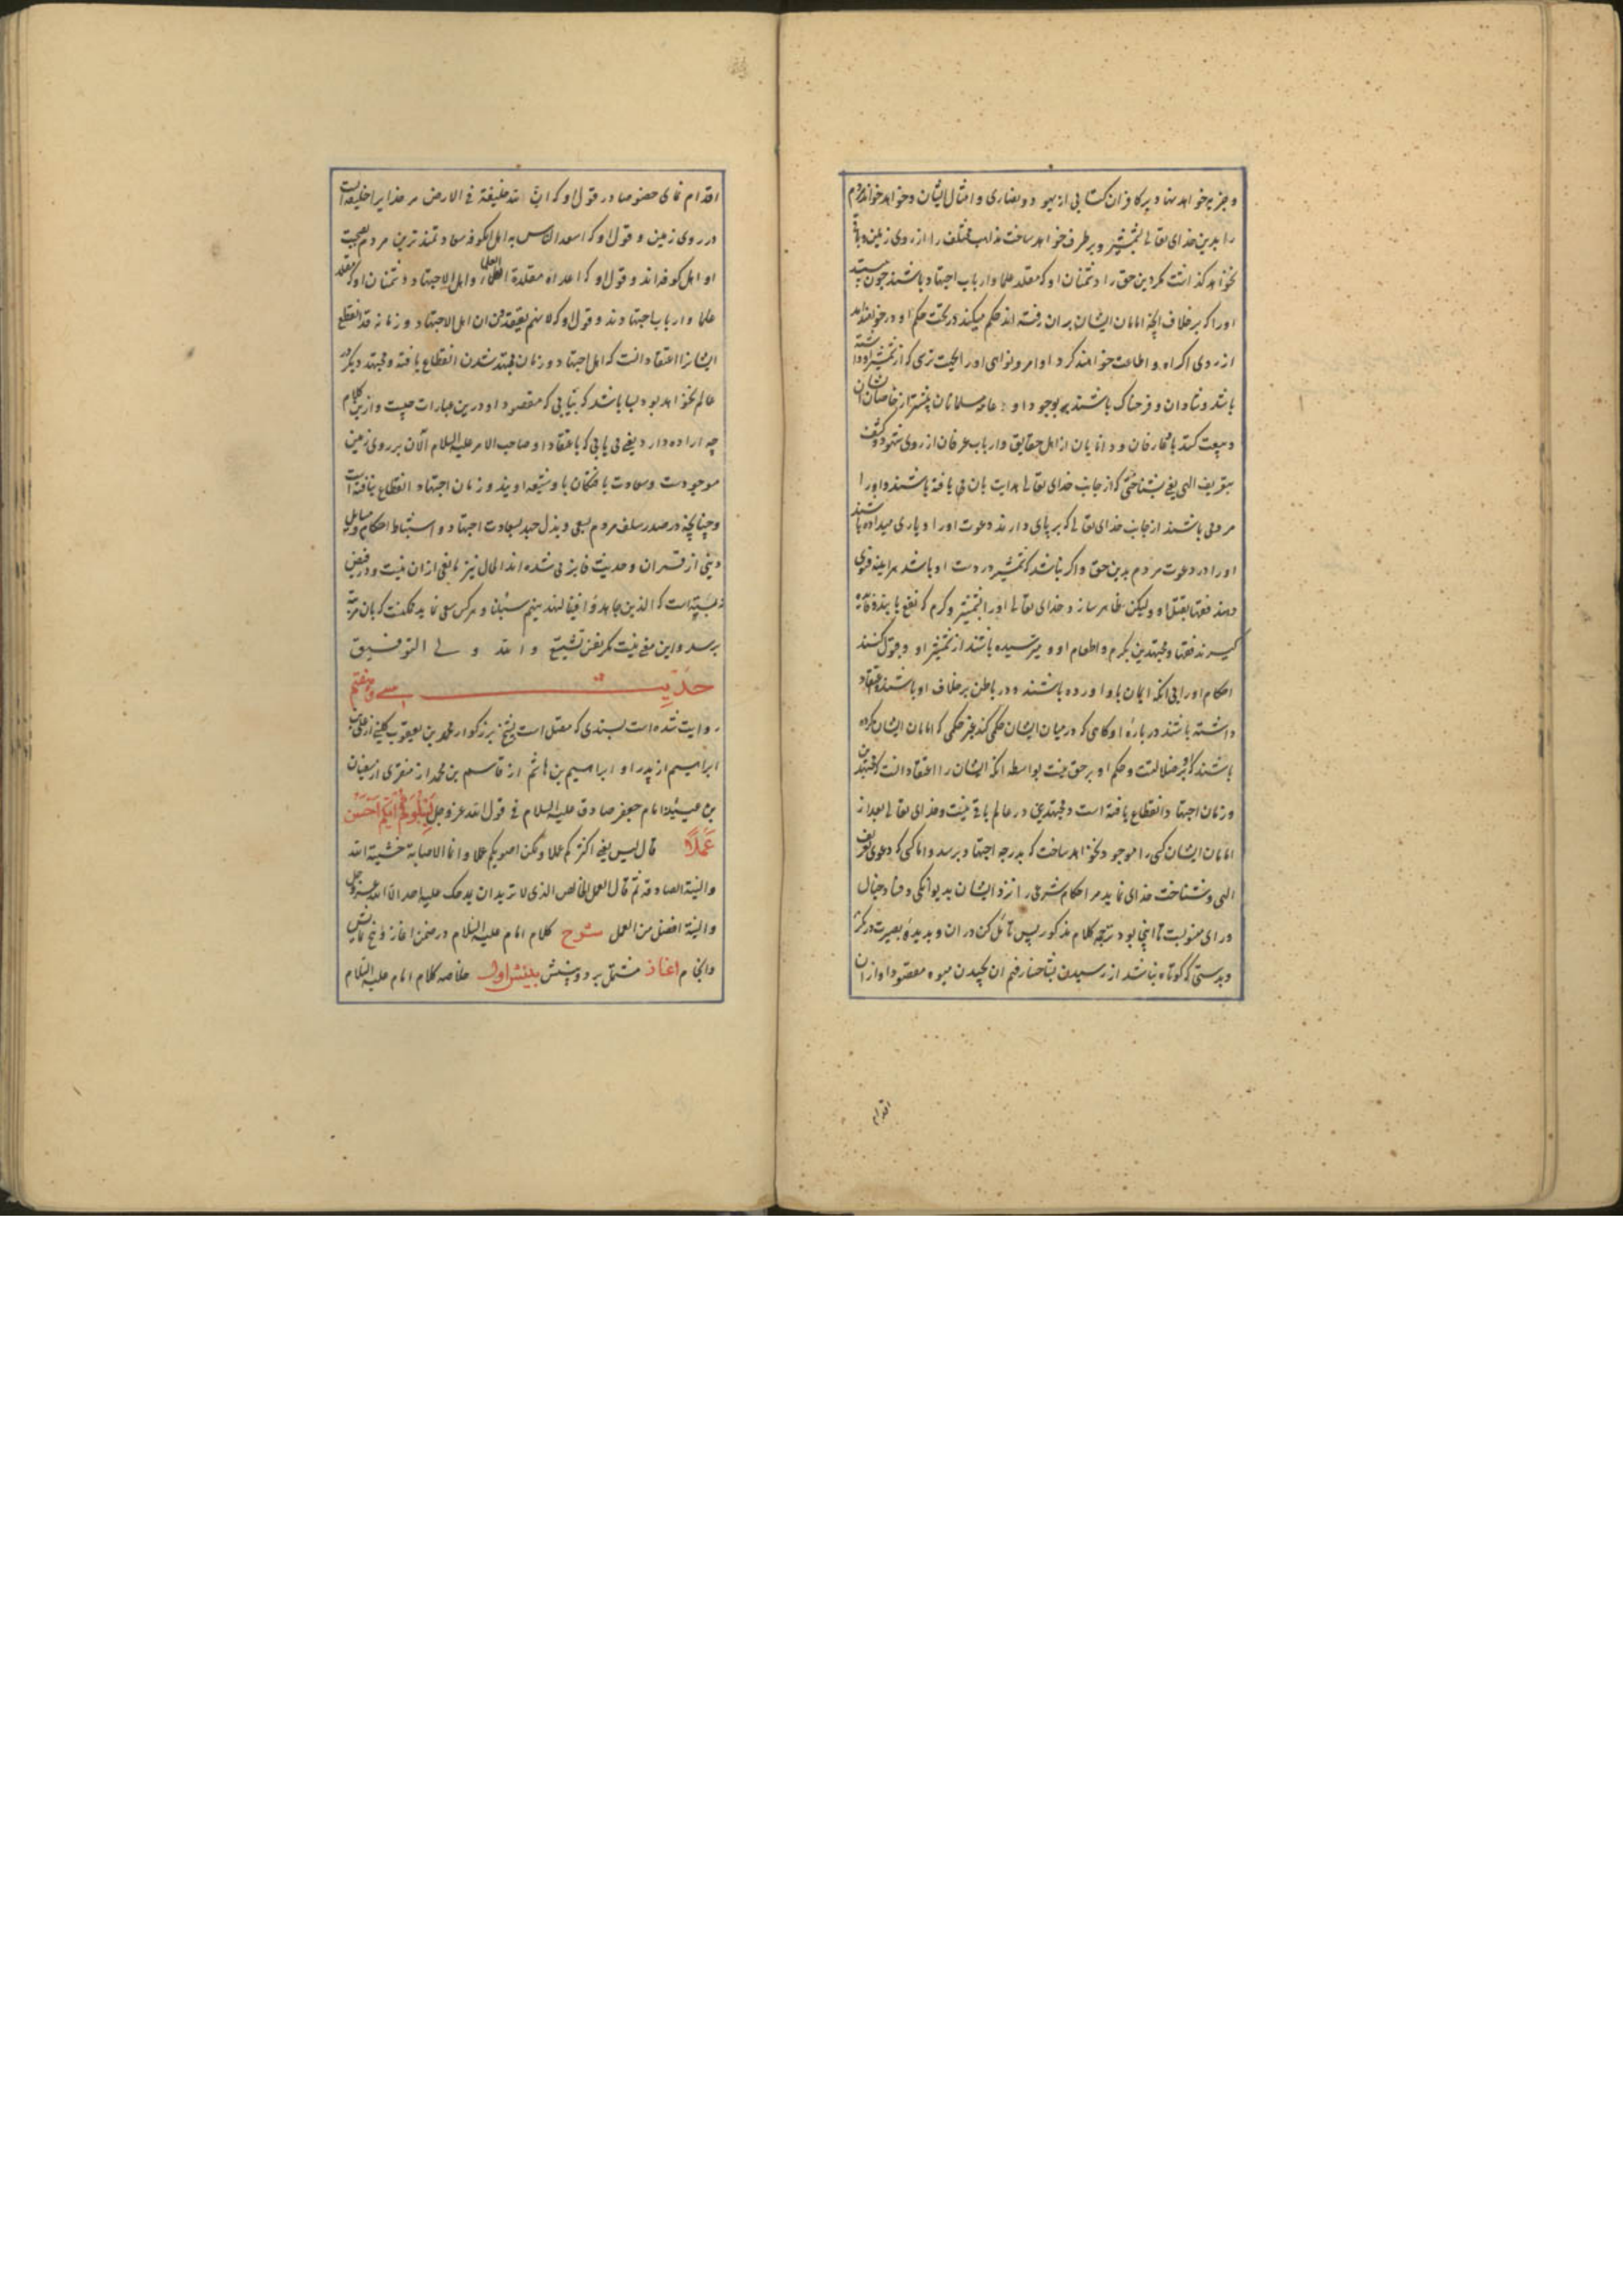 و جزیه خواهد نهاد بر کافران کتابی از یهود و نصاری و امثال ایشان و خواهد خواند مردم
را بدین خدای تعالی بشمشیر و برطرف خواهد ساخت مذاهب مختلف را از روی زمین و باقی
نخواهد گذاشت مگر دین حق را و دشمنان او که مقلد علما و ارباب اجتهاد باشند چون ببینند
او را که بر خلاف آنچه امامان ایشان بدان رفته اند حکم میکند در تحت حکم او در خواهند آمد
از روی اکراه و اطاعت خواهند کرد اوامر و نواهی او را بجهت ترسی که از شمشیر او داشته
باشند و شادان و فرحناک باشند بوجود او عامه مسلمانان بیشتر از خاصان ایشان
و بیعت کنند با او عارفان و دانایان از اهل حقایق و ارباب عرفان از روی شهود و کشف
بتعریف الهی یعنی بشناختی که از جانب خدای تعالی هدایت بان می یافته باشند و او را
مردمی باشند از جانب خدای تعالی که بر پای دارند دعوت او را و یاری میداده باشند
او را در دعوت مردم بدین حق و اگر نباشد که شمشیر در دست او باشد هراینه فتوی
دهند فقها بقتل او و لیکن ظاهر سازد خدای تعالی او را بشمشیر و کرم که نفع یابند و فایده
گیرند فقها و مجتهدین بکرم و اطعام او و ترسیده باشند از شمشیر او و قبول کنند
احکام او را بی آنکه ایمان باو آورده باشند و در باطن بر خلاف او باشند و اعتقاد
داشته باشند درباره او گاهی که در میان ایشان حکمی کند بغیر حکمی که امامان ایشان کرده
باشند که او بر ضلالتست و حکم او بر حق نیست بواسطه آنکه ایشان را اعتقاد آنست که مجتهدین
و زمان اجتهاد انقطاع یافته است و مجتهدی در عالم باقی نیست و خدای تعالی بعد از
امامان ایشان کسی را موجود نخواهد ساخت که بدرجه اجتهاد برسد و اما کسی که دعوی تعریف
الهی و شناخت خدای نماید مر احکام شرعی را نزد ایشان بدیوانگی و فساد خیال
و رای منسوبست تا اینجا بود ترجمه کلام مذکور پس تامل کن در آن و بدیده بصیرت در نگر
و بدستی که کوتاه نباشد از رسیدن بشاخسار فهم آن بچیدن میوه مقصود او از آن
اقدام
اقدام نمای خصوصا در قول او که ان لله خلیفة فی الارض مر خدایرا خلیفه ایست
در روی زمین و قول او که اسعد الناس به اهل الکوفه سعادتمندترین مردم بصحبت
او اهل کوفه اند و قول او که اعداه مقلدة العلماء و اهل الاجتهاد دشمنان او که مقلد
علما و ارباب اجتهادند و قول او که لانهم یعتقدون ان اهل الاجتهاد و زمانه قد انقطع
ایشانرا اعتقاد آنست که اهل اجتهاد و زمان مجتهد شدن انقطاع یافته و مجتهد دیگر در
عالم نخواهد بود بسا باشد که بیابی که مقصود او درین عبارات چیست و ازین کلام
چه اراده دارد یعنی می یابی که باعتقاد او صاحب الامر علیه السلام الان بر روی زمین
موجودست و سعادت یافتگان باو شیعه اویند و زمان اجتهاد انقطاع نیافته است
و چنانچه در صدر سلف مردم بسعی و بذل جهد بسعادت اجتهاد و استنباط احکام و مسایل
دینی از قران و حدیث فایز می شده اند الحال نیز مانعی از ان نیست و در فیض
نبسته است که الذین جاهدوا فینا لنهدینهم سبلنا و هر کس سعی نماید ممکنست که بان مرتبه
برسد و این معنی نیست مگر نفس تشیع و الله ولی التوفیق
حدیث سی و هفتم
روایت شده است بسندی که متصل است بشیخ بزرگوار محمد بن یعقوب کلینی از علی بن
ابراهیم از پدر او ابراهیم بن هاشم از قاسم بن محمد از منقری از سفیان
بن عیینه از امام جعفر صادق علیه السلام فی قول الله عز و جل لِیَبْلُوَکُمْ اَیُّکُمْ اَحْسَنُ
عَمَلًا قال لیس یعنی اکثرکم عملا و لکن اصوبکم عملا و انما الاصابة خشیة الله
والنیة الصادقة ثم قال العمل الخالص الذی لا ترید ان یمدحک علیه احد الا الله عز و جل
والنیة افضل من العمل شرح کلام امام علیه السلام در ضمن آغاز و پنج نمایش
و انجام آغاز مشتمل بر دو بینش بینش اول خلاصه کلام امام علیه السلام